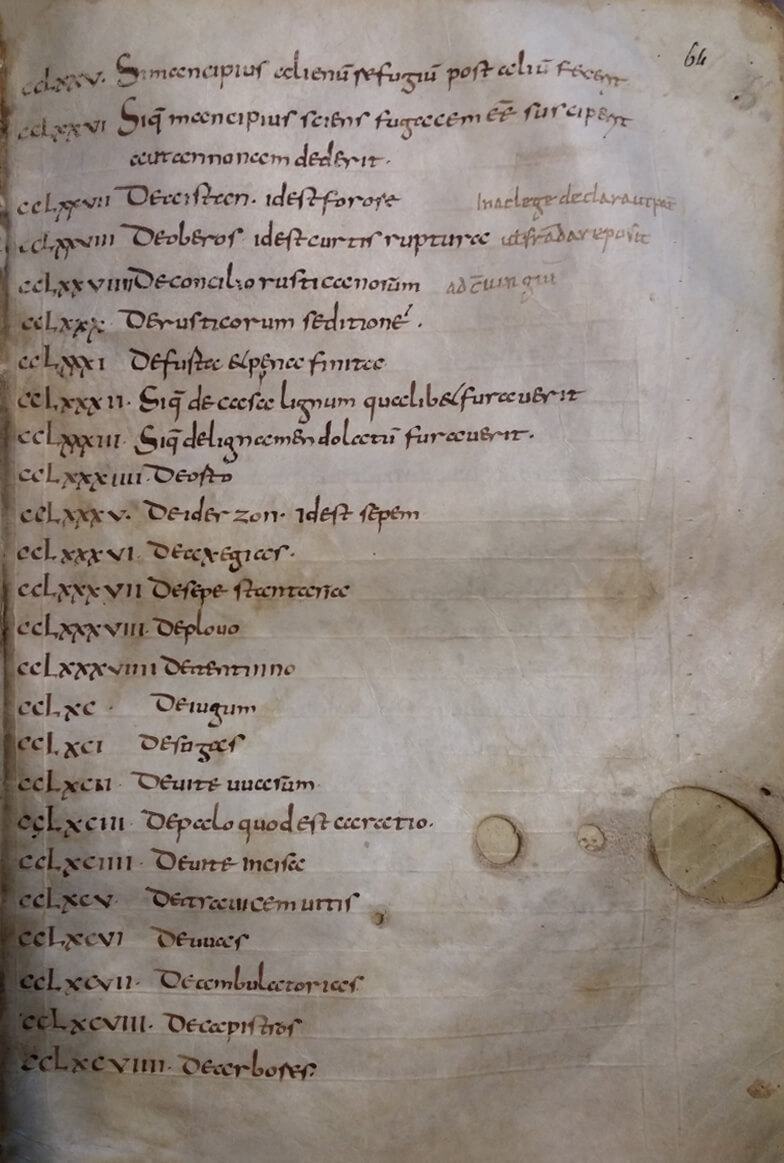 64
ccLxxv. Simancipius alienū refugiū post aliū fecerit
ccLxxvi Siq̄ mancipius sciens fugacem eē̄ susciperit
aut annonam dederit.
ccLxxvii De aistan. id est forore
ccLxxviii De oberos id est curtis rupturae
ccLxxviiii De concilio rusticanorum
ccLxxx De rusticorum seditione.
ccLxxxi De fusta & perca finita
ccLxxxii. Siq̄ de casa lignum quaelib& furaverit
ccLxxxiii. Siq̄ de lignamen dolatū furaverit.
ccLxxxiiii. De osto
ccLxxxv. De iderzon. id est sepem
ccLxxxvi. De axegias.
ccLxxxvii De sepe stantaria
ccLxxxviii. De plovo
ccLxxxviiii De tentinno
ccLxc. De iugum
ccLxci De sogas
ccLxcii De vite uvarum
ccLxciii De palo quod est carratio.
ccLxciiii. De vite incisa
ccLxcv De travicem vitis
ccLxcvi De uvas
ccLxcvii. De ambulatorias
ccLxcviii. De capistros
ccLxcviiii. De arbores